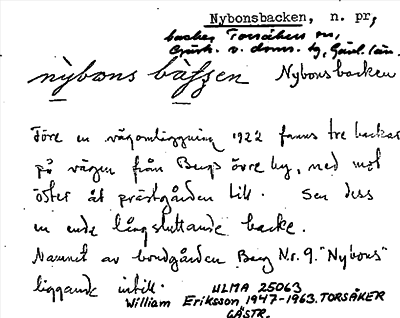 Nybonsbacken, n. pr,
backe, Torsåkers sn,
Gästr. v. doms. hg, Gävl. län.
nỳbo̲ns bàkk̲en Nybonsbacken
Före en vägomläggning 1922 fanns tre backar
på vägen från Bergs övre by, ned mot
öster åt prästgården till. Sen dess
en enda långsluttande backe.
Namnet av bondgården Berg Nr. 9. "Nybons"
liggande intill. ULMA 25063
William Eriksson 1947-1963. TORSÅKER
GÄSTR.